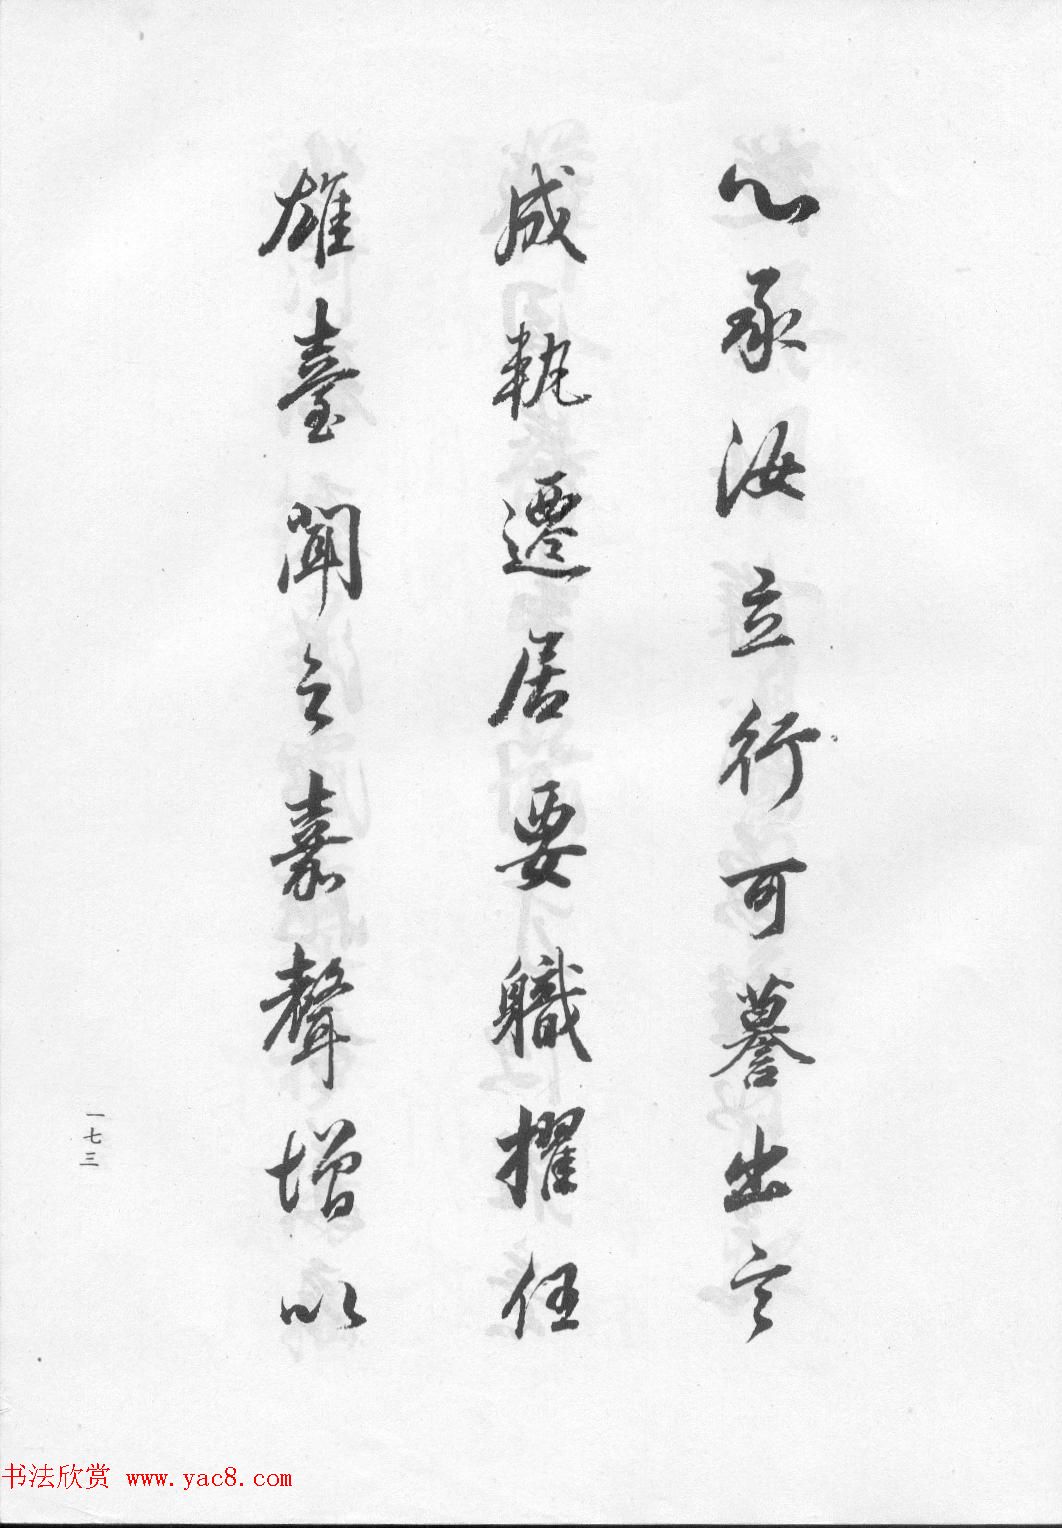 心承汝立行可譽出言
成軌遷居要職擢任
雄臺聞之嘉聲增以
一七三
书法欣赏 www.yac8.com